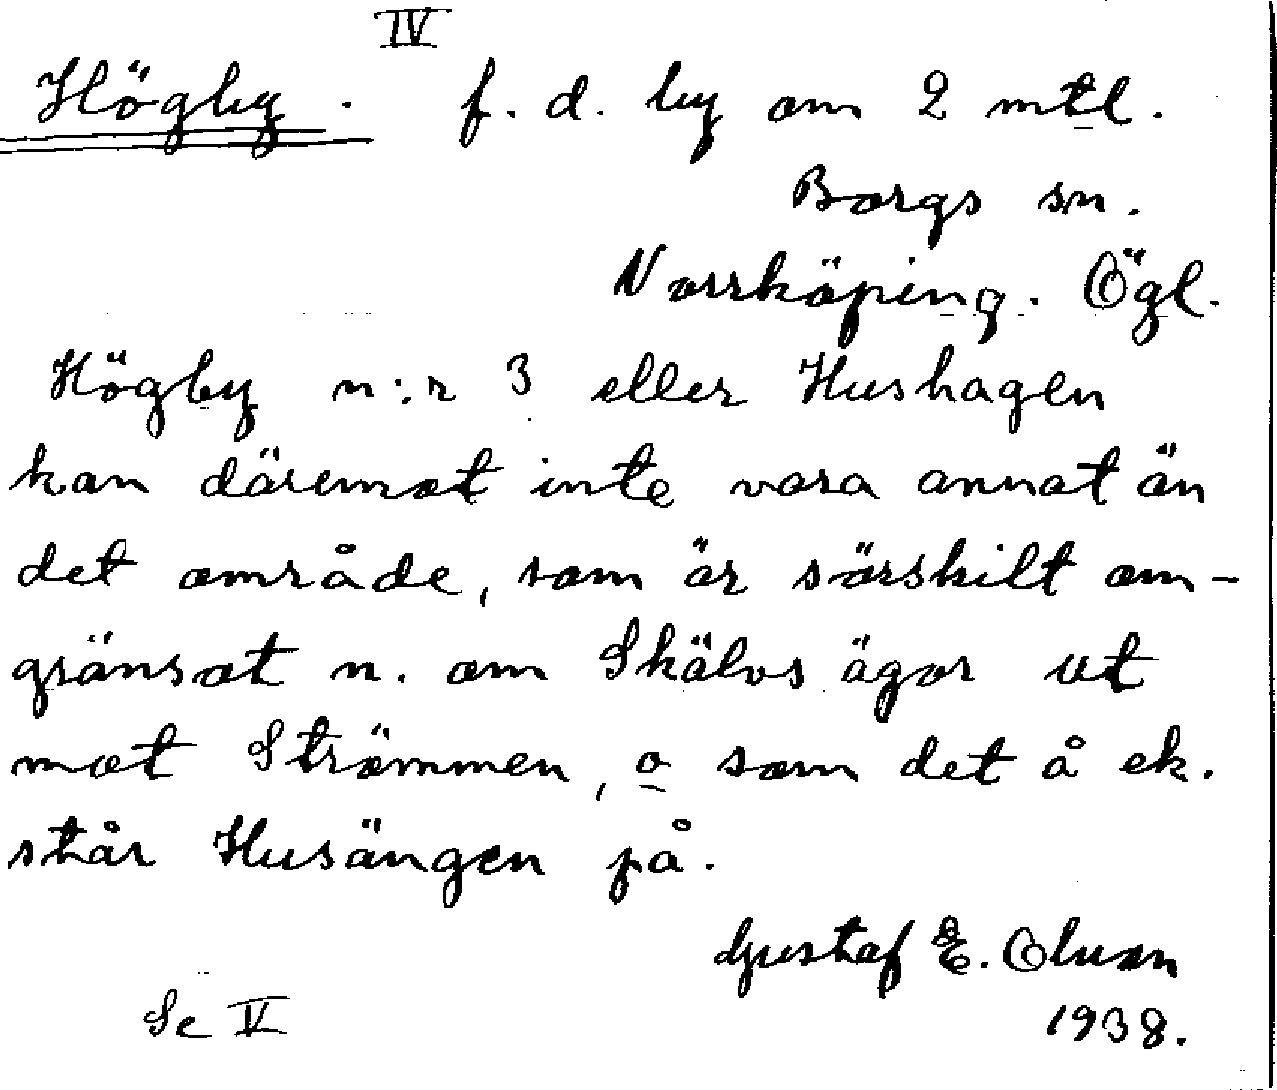 IV
Högby. f. d. by om 2 mtl.
Borgs sn.
Norrköping. Ögl.
Högby n:r 3 eller Hushagen
kan däremot inte vara annat än
det område, som är särskilt om-
gränsat n. om Skälvs ägor ut
mot Strömmen, o som det å ek.
står Husängen på.
Gustaf E. Oluson
1938.
Se V